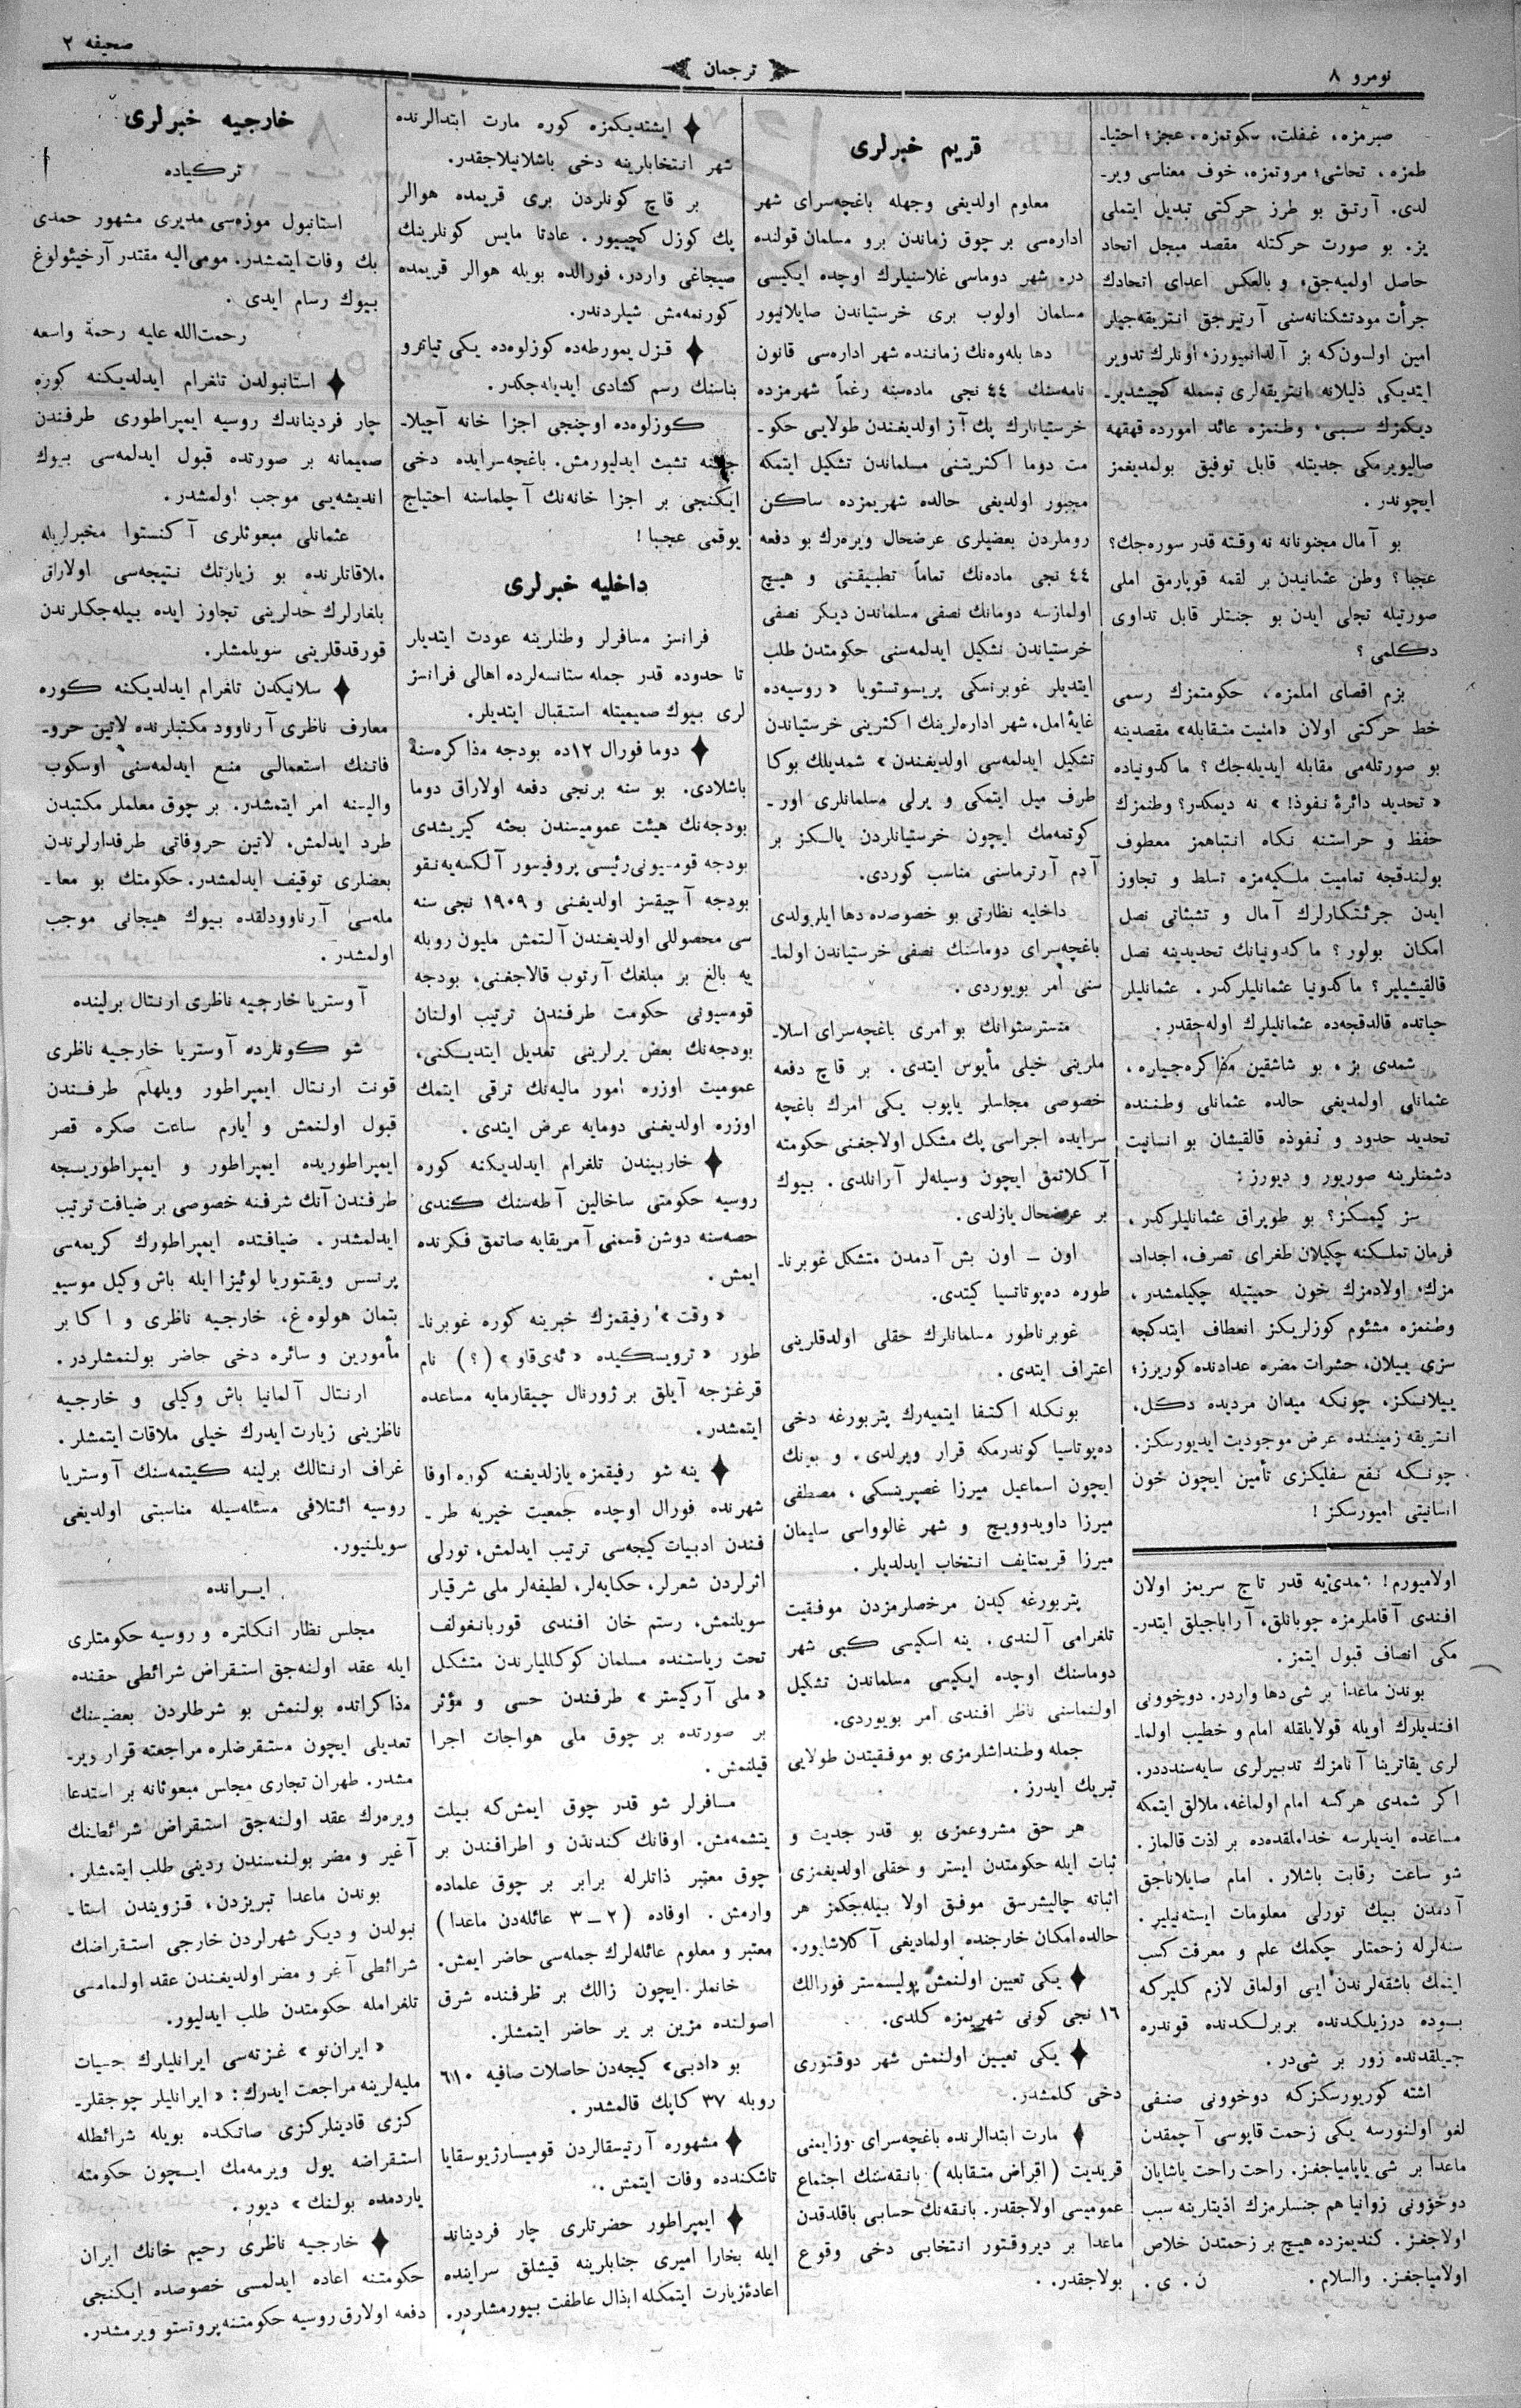 نومرو ٨
ترجمان
صحيفه ٢
صبرمزه، غفلت، سكوتمزه، عجز؛ احتيا-
طمزه، تحاشى؛ مروتمزه، خوف معناسى وير-
لدى. آرتق بو طرز حركتى تبديل ايتملى
يز. بو صورت حركتله مقصد مبجل اتحاد
حاصل اولميه‌جق، و بالعكس اعداى اتحادك
جرأت مودتشكنانه‌سنى آرتيرجق انتريقه‌جيلر
امين اولسون‌كه بز آلدانميورز، اونلرك تدوير
ايتديكى ذليلانه انتريقه‌لرى تبسمله كچيشدير-
ديكمزك سببى، وطنمزه عائد امورده قهقهه
صاليويرمكى جديتله قابل توفيق بولمديغمز
ايچوندر.
بو آمال مجنونانه نه وقته قدر سوره‌جك؟
عجبا؟ وطن عثمانيدن بر لقمه قوپارمق املى
صورتيله تجلى ايدن بو جنتلر قابل تداوى
دكلمى؟
بزم اقصاى املمزه، حكومتمزك رسمى
خط حركتى اولان «امنيت متقابله» مقصدينه
بو صورتله‌مى مقابله ايديله‌جك؟ ماكدونياده
«تحديد دائرهٔ نفوذ!» نه ديمكدر؟ وطنمزك
حفظ و حراستنه نكاه انتباهمز معطوف
بولندقجه تماميت ملكيه‌مزه تسلط و تجاوز
ايدن جرئتكارلرك آمال و تشبثاتى نصل
امكان بولور؟ ماكدونيانك تحديدينه نصل
قالقيشيلير؟ ماكدونيا عثمانليلركدر. عثمانليلر
حياتده قالدقجه‌ده عثمانليلرك اوله‌جقدر.
شمدى بز، بو شاشقين مذاكره‌جيلره،
عثمانلى اولمديغى حالده عثمانلى وطننده
تحديد حدود و نفوذه قالقيشان بو انسانيت
دشمنلرينه صوريور و ديورز:
سز كيمسكز؟ بو طوپراق عثمانليلركدر،
فرمان تملكنه چكيلان طغراى تصرف، اجداد-
مزك، اولادمزك خون حميتيله چكيلمشدر،
وطنمزه مشئوم كوزلريكز انعطاف ايتدكجه
سزى ييلان، حشرات مضره عدادنده كوريرز؛
ييلانسكز، چونكه ميدان مرديده دكل،
انتريقه زميننده عرض موجوديت ايديورسكز.
چونكه نفع سفليكزى تأمين ايچون خون
انسانيتى اميورسكز!
اولاميورم! شمدى‌يه قدر تاج سريمز اولان
افندى آقاملرمزه چوبانلق، آراباجيلق ايتدر-
مكى انصاف قبول ايتمز.
بوندن ماعدا بر شى دها واردر. دوخوونى
افنديلرك اويله قولايلقله امام و خطيب اولما-
لرى يقاترينا آنامزك تدبيرلرى سايه‌سنده‌در.
اكر شمدى هركسه امام اولماغه، ملالق ايتمكه
مساعده ايديلرسه خداملقده‌ده بر لذت قالماز.
شو ساعت رقابت باشلار. امام صايلاناجق
آدمدن بيك تورلى معلومات ايسته‌نيلير.
سنه‌لرله زحمتلر چكمك علم و معرفت كسب
ايتمك باشقه‌لرندن ايى اولماق لازم كليركه
بوده درزيلكدنده بربرلكدنده قوندره
جيلقدنده زور بر شى‌در.
اشته كوريورسكزكه دوخوونى صنفى
لغو اولنورسه يكى زحمت قاپوسى آچمقدن
ماعدا بر شى ياپامياجغز. راحت راحت ياشايان
دوخوونى زوانيا هم جنسلرمزك اذيتلرينه سبب
اولاجغز. كنديمزده هيچ بر زحمتدن خلاص
اولامياجغز. والسلام. ن. ى.
قريم خبرلرى
معلوم اولديغى وجهله باغچه‌سراى شهر
اداره‌سى بر چوق زماندن برو مسلمان قولنده
در. شهر دوماسى غلاسنيلرك اوچده ايكيسى
مسلمان اولوب برى خرستياندن صايلانيور
دها بله‌وه‌نك زماننده شهر اداره‌سى قانون
نامه‌سنك ٤٤ نجى ماده‌سنه رغماً شهرمزده
خرستيانلرك پك آز اولديغندن طولايى حكو-
مت دوما اكثريتنى مسلماندن تشكيل ايتمكه
مجبور اولديغى حالده شهريمزده ساكن
روملردن بعضيلرى عرضحال ويره‌رك بو دفعه
٤٤ نجى ماده‌نك تماماً تطبيقنى و هيچ
اولمازسه دومانك نصفى مسلماندن ديكر نصفى
خرستياندن تشكيل ايدلمه‌سنى حكومتدن طلب
ايتديلر غوبرنسكى پريسوتستويا «روسيه‌ده
غايهٔ امل، شهر اداره‌لرينك اكثرينى خرستياندن
تشكيل ايدلمه‌سى اولديغندن» شمديلك بوكا
طرف ميل ايتمكى و يرلى مسلمانلرى اور-
كوتمه‌مك ايچون خرستيانلردن يالكز بر
آدم آرترماسنى مناسب كوردى.
داخليه نظارتى بو خصوصده دها ايلريولدى
باغچه‌سراى دوماسنك نصفى خرستياندن اولما-
سنى امر بويوردى.
منسترستوانك بو امرى باغچه‌سراى اسلا-
ملرينى خيلى مأيوس ايتدى. بر قاچ دفعه
خصوصى مجلسلر ياپوب يكى امرك باغچه
سرايده اجراسى پك مشكل اولاجغنى حكومته
آكلاتمق ايچون وسيله‌لر آرانلدى. بيوك
بر عرضحال يازلدى.
اون — اون بش آدمدن متشكل غوبرنا-
طوره ده‌پوتاتسيا كيتدى.
غوبرناطور مسلمانلرك حقلى اولدقلرينى
اعتراف ايتدى.
بونكله اكتفا ايتميه‌رك پتربورغه دخى
ده‌پوتاسيا كوندرمكه قرار ويرلدى. و بونك
ايچون اسماعيل ميرزا غصپرينسكى، مصطفى
ميرزا داويدوويچ و شهر غالوواسى سليمان
ميرزا قريمتايف انتخاب ايدلديلر.
پتربورغه كيدن مرخصلرمزدن موفقيت
تلغرامى آلندى. ينه اسكيسى كبى شهر
دوماسنك اوچده ايكيسى مسلماندن تشكيل
اولنماسنى ناظر افندى امر بويوردى.
جمله وطنداشلرمزى بو موفقيتدن طولايى
تبريك ايدرز.
هر حق مشروعمزى بو قدر جديت و
ثبات ايله حكومتدن ايستر و حقلى اولديغمزى
اثباته چاليشرسق موفق اولا بيله‌جكمز هر
حالده امكان خارجنده اولماديغى آكلاشليور.
يكى تعيين اولنمش پوليسمستر فورالك
١٦ نجى كونى شهريمزه كلدى.
يكى تعيين اولنمش شهر دوقتورى
دخى كلمشدر.
مارت ابتدالرنده باغچه‌سراى وزايمنى
قريديت (اقراض متقابله) بانقه‌سنك اجتماع
عموميسى اولاجقدر. بانقه‌نك حسابى باقلدقدن
ماعدا بر ديروقتور انتخابى دخى وقوع
بولاجقدر.
ايشتديكمزه كوره مارت ابتدالرنده
شهر انتخابلرينه دخى باشلانيلاجقدر.
بر قاچ كونلردن برى قريمده هوالر
پك كوزل كچييور. عادتا مايس كونلرينك
صيجاغى واردر، فورالده بويله هوالر قريمده
كورنمه‌مش شيلردندر.
قزل يمورطه‌ده كوزلوه‌ده يكى تياترو
بناسنك رسم كشادى ايديله‌جكدر.
كوزلوه‌ده اوچنجى اجزا خانه آچيلا-
جغنه تشبث ايدليورمش. باغچه‌سرايده دخى
ايكنجى بر اجزا خانه‌نك آچلماسنه احتياج
يوقمى عجبا!
داخليه خبرلرى
فرانسز مسافرلر وطنلرينه عودت ايتديلر
تا حدوده قدر جمله ستانسه‌لرده اهالى فرانسز
لرى بيوك صميميتله استقبال ايتديلر.
دوما فورال ١٢ده بودجه مذاكره‌سنه
باشلادى. بو سنه برنجى دفعه اولاراق دوما
بودجه‌نك هيئت عموميسندن بحثه كيريشدى
بودجه قومسيونى رئيسى پروفيسور آلكسه‌يه‌نقو
بودجه آچيقسز اولديغنى و ١٩٠٩ نجى سنه
سى محصوللى اولديغندن آلتمش مليون روبله
يه بالغ بر مبلغك آرتوب قالاجغنى، بودجه
قومسيونى حكومت طرفندن ترتيب اولنان
بودجه‌نك بعض يرلرينى تعديل ايتديكنى،
عموميت اوزره امور ماليه‌نك ترقى ايتمك
اوزره اولديغنى دومايه عرض ايتدى.
خاربيندن تلغرام ايدلديكنه كوره
روسيه حكومتى ساخالين آطه‌سنك كندى
حصه‌سنه دوشن قسمنى آمريقايه صاتمق فكرنده
ايمش.
«وقت» رفيقمزك خبرينه كوره غوبرنا-
طور «ترويسكيده «ئه‌ى‌قاو» (؟) نام
قرغزجه آيلق بر ژورنال چيقارمايه مساعده
ايتمشدر.
ينه شو رفيقمزه يازلديغنه كوره اوفا
شهرنده فورال اوچده جمعيت خيريه طر-
فندن ادبيات كيجه‌سى ترتيب ايدلمش، تورلى
اثرلردن شعرلر، حكايه‌لر، لطيفه‌لر ملى شرقيلر
سويلنمش، رستم خان افندى قوربانغولف
تحت رياستنده مسلمان كوكلليلرندن متشكل
«ملى آركيستر» طرفندن حسى و مؤثر
بر صورتده بر چوق ملى هواجات اجرا
قيلنمش.
مسافرلر شو قدر چوق ايمش‌كه بيلت
يتشمه‌مش. اوفانك كندندن و اطرافندن بر
چوق معتبر ذاتلرله برابر بر چوق علماده
وارمش. اوفاده (٢—٣ عائله‌دن ماعدا)
معتبر و معلوم عائله‌لرك جمله‌سى حاضر ايمش.
خانملر ايچون زالك بر طرفنده شرق
اصولنده مزين بر ير حاضر ايتمشلر.
بو «ادبى» كيجه‌دن حاصلات صافيه ٦١٠
روبله ٣٧ كاپك قالمشدر.
مشهوره آرتيسقالردن قوميسارژيوسقايا
تاشكندده وفات ايتمش.
ايمپراطور حضرتلرى چار فرديناند
ايله بخارا اميرى جنابلرينه قيشلق سراينده
اعادهٔ زيارت ايتمكله ابذال عاطفت بيورمشلردر.
خارجيه خبرلرى
تركياده
استانبول موزه‌سى مديرى مشهور حمدى
بك وفات ايتمشدر. مومى‌اليه مقتدر آرخيئولوغ
بيوك رسام ايدى.
رحمت‌الله عليه رحمة واسعه
استانبولدن تلغرام ايدلديكنه كوره
چار فرديناندك روسيه ايمپراطورى طرفندن
صميمانه بر صورتده قبول ايدلمه‌سى بيوك
انديشه‌يى موجب اولمشدر.
عثمانلى مبعوثلرى آكنستوا مخبرلريله
ملاقاتلرنده بو زيارتك نتيجه‌سى اولاراق
بلغارلرك حدلرينى تجاوز ايده بيله‌جكلرندن
قورقدقلرينى سويلمشلر.
سلانيكدن تلغرام ايدلديكنه كوره
معارف ناظرى آرناوود مكتبلرنده لاتين حرو-
فاتنك استعمالى منع ايدلمه‌سنى اوسكوب
واليسنه امر ايتمشدر. بر چوق معلملر مكتبدن
طرد ايدلمش، لاتين حروفاتى طرفدارلرندن
بعضلرى توقيف ايدلمشدر. حكومتك بو معا-
مله‌سى آرناوودلقده بيوك هيجانى موجب
اولمشدر.
آوستريا خارجيه ناظرى ارنتال برلينده
شو كونلرده آوستريا خارجيه ناظرى
قونت ارنتال ايمپراطور ويلهلم طرفندن
قبول اولنمش و يارم ساعت صكره قصر
ايمپراطوريده ايمپراطور و ايمپراطوريسجه
طرفندن آنك شرفنه خصوصى بر ضيافت ترتيب
ايدلمشدر. ضيافتده ايمپراطورك كريمه‌سى
پرنسس ويقتوريا لوئيزا ايله باش وكيل موسيو
بتمان هولوه‌غ، خارجيه ناظرى و اكابر
مأمورين و سائره دخى حاضر بولنمشلردر.
ارنتال آلمانيا باش وكيلى و خارجيه
ناظرينى زيارت ايدرك خيلى ملاقات ايتمشلر.
غراف ارنتالك برلينه كيتمه‌سنك آوستريا
روسيه ائتلافى مسئله‌سيله مناسبتى اولديغى
سويلنيور.
ايرانده
مجلس نظار انكلتره و روسيه حكومتلرى
ايله عقد اولنه‌جق استقراض شرائطى حقنده
مذاكراتده بولنمش بو شرطلردن بعضيسنك
تعديلى ايچون مستقرضلره مراجعته قرار وير-
مشدر. طهران تجارى مجلس مبعوثانه بر استدعا
ويره‌رك عقد اولنه‌جق استقراض شرائطنك
آغير و مضر بولنمسندن ردينى طلب ايتمشلر.
بوندن ماعدا تبريزدن، قزويندن استا-
نبولدن و ديكر شهرلردن خارجى استقراضك
شرائطى آغر و مضر اولديغندن عقد اولنمامسى
تلغرامله حكومتدن طلب ايدليور.
«ايران‌نو» غزته‌سى ايرانليلرك حسيات
مليه‌لرينه مراجعت ايدرك: «ايرانليلر چوجقلر-
كزى قادينلركزى صاتكده بويله شرائطله
استقراضه يول ويرمه‌مك ايچون حكومته
ياردمده بولنك» ديور.
خارجيه ناظرى رحيم خانك ايران
حكومتنه اعاده ايدلمسى خصوصده ايكنجى
دفعه اولارق روسيه حكومتنه پروتستو ويرمشدر.